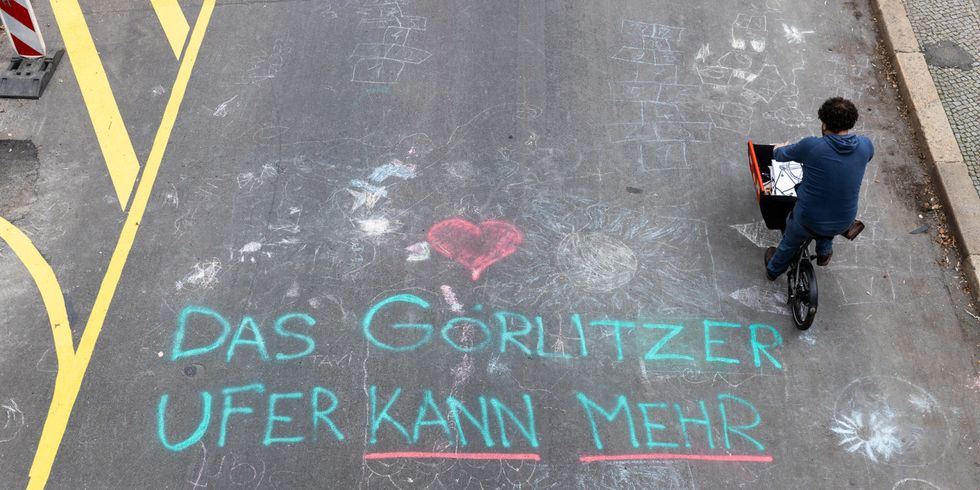 DAS GÖRLITZER
UFER KANN MEHR